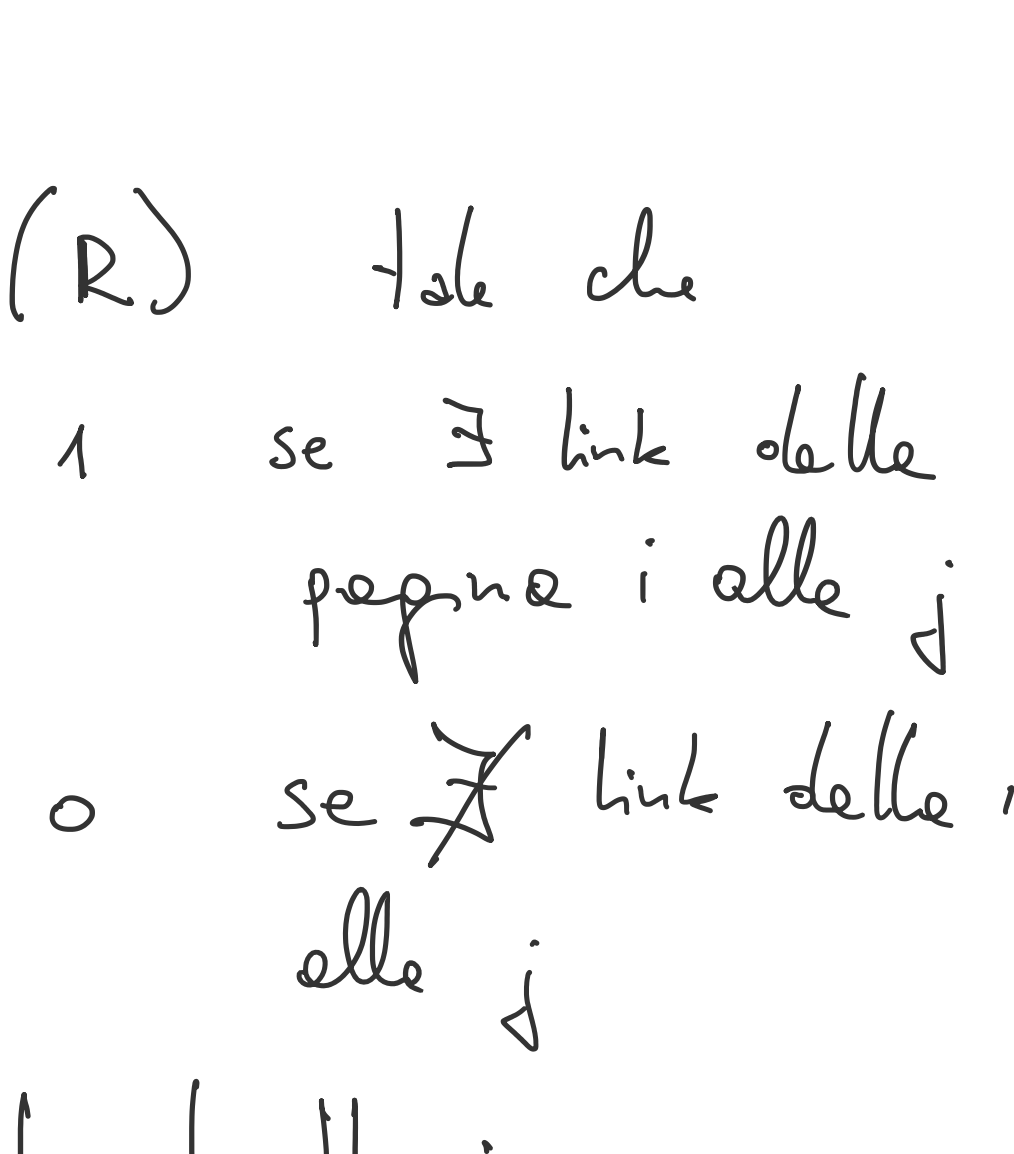 (R) tale che
1 se ∃ link dalla
pagina i alla j
0 se ∄ link dalla
alla j